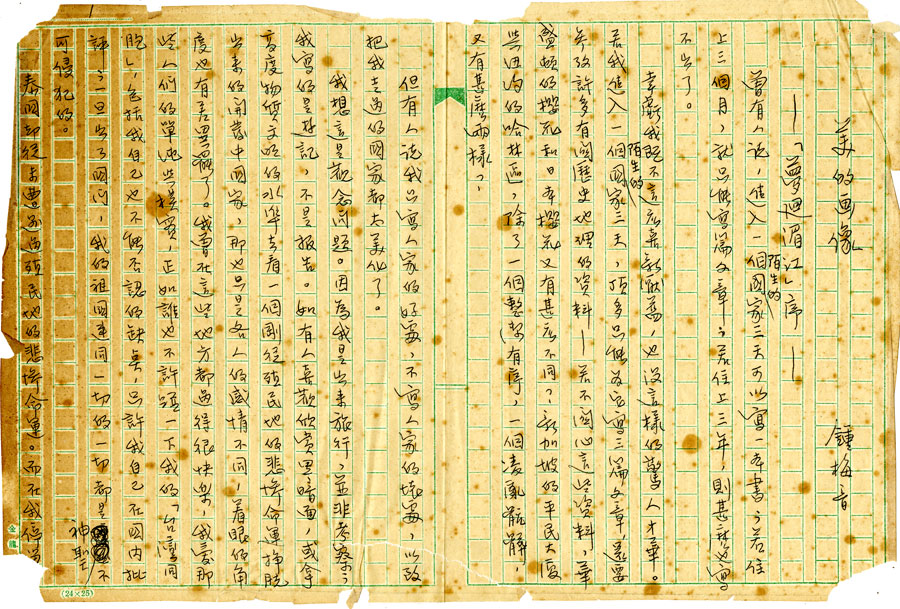 美的画像
——「夢迴湄江」序——
鍾梅音
曾有人說，進入一個陌生的國家三天可以寫一本書；若住
上三個月，就只能寫篇文章；若住上三年，則甚麼也寫
不出了。
幸虧我既不這麼喜新厭舊，也沒這樣的驚人才華。
若我進入一個陌生的國家三天，頂多只能為它寫三篇文章，還要
參考許多有關歷史地理的資料——若不關心這些資料，華
盛頓的櫻花和日本櫻花又有甚麼不同？新加坡的平民大廈
與紐約的哈林區，除了一個整潔有序，一個凌亂骯髒，
又有甚麼兩樣？
但有人說我只寫人家的好處，不寫人家的壞處，以致
把我去過的國家都太美化了。
我想這是觀念問題。因為我是出來旅行，並非考察；
我寫的是遊記，不是報告。如有人喜歡欣賞黑暗面，或拿
高度物質文明的水準去看一個剛從殖民地的悲慘命運掙脫
出來的開發中國家，那也只是各人的感情不同，着眼的角
度也有差異罷了。我曾在這些地方都過得很快樂，我愛那
些人們的單純與樸實，正如誰也不許碰一下我的「台灣同
胞」，包括我自己也不能否認的缺點，只許我自己在國內批
評；一旦出了國門，我的祖國連同一切的一切都是神聖不
可侵犯的。
泰國却從未遭遇過殖民地的悲慘命運。而在我停留
(24×25)